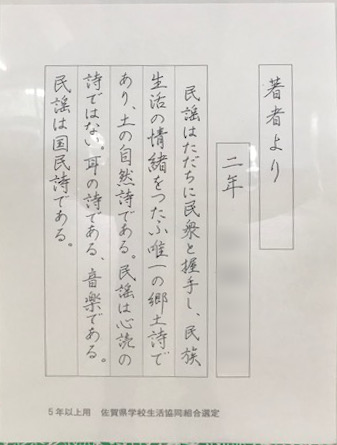 著者より
二年
民謡はただちに民衆と握手し、民族
生活の情緒をつたふ唯一の郷土詩で
あり、土の自然詩である。民謡は心読の
詩ではない。耳の詩である、音楽である。
民謡は国民詩である。
5年以上用　佐賀県学校生活協同組合選定